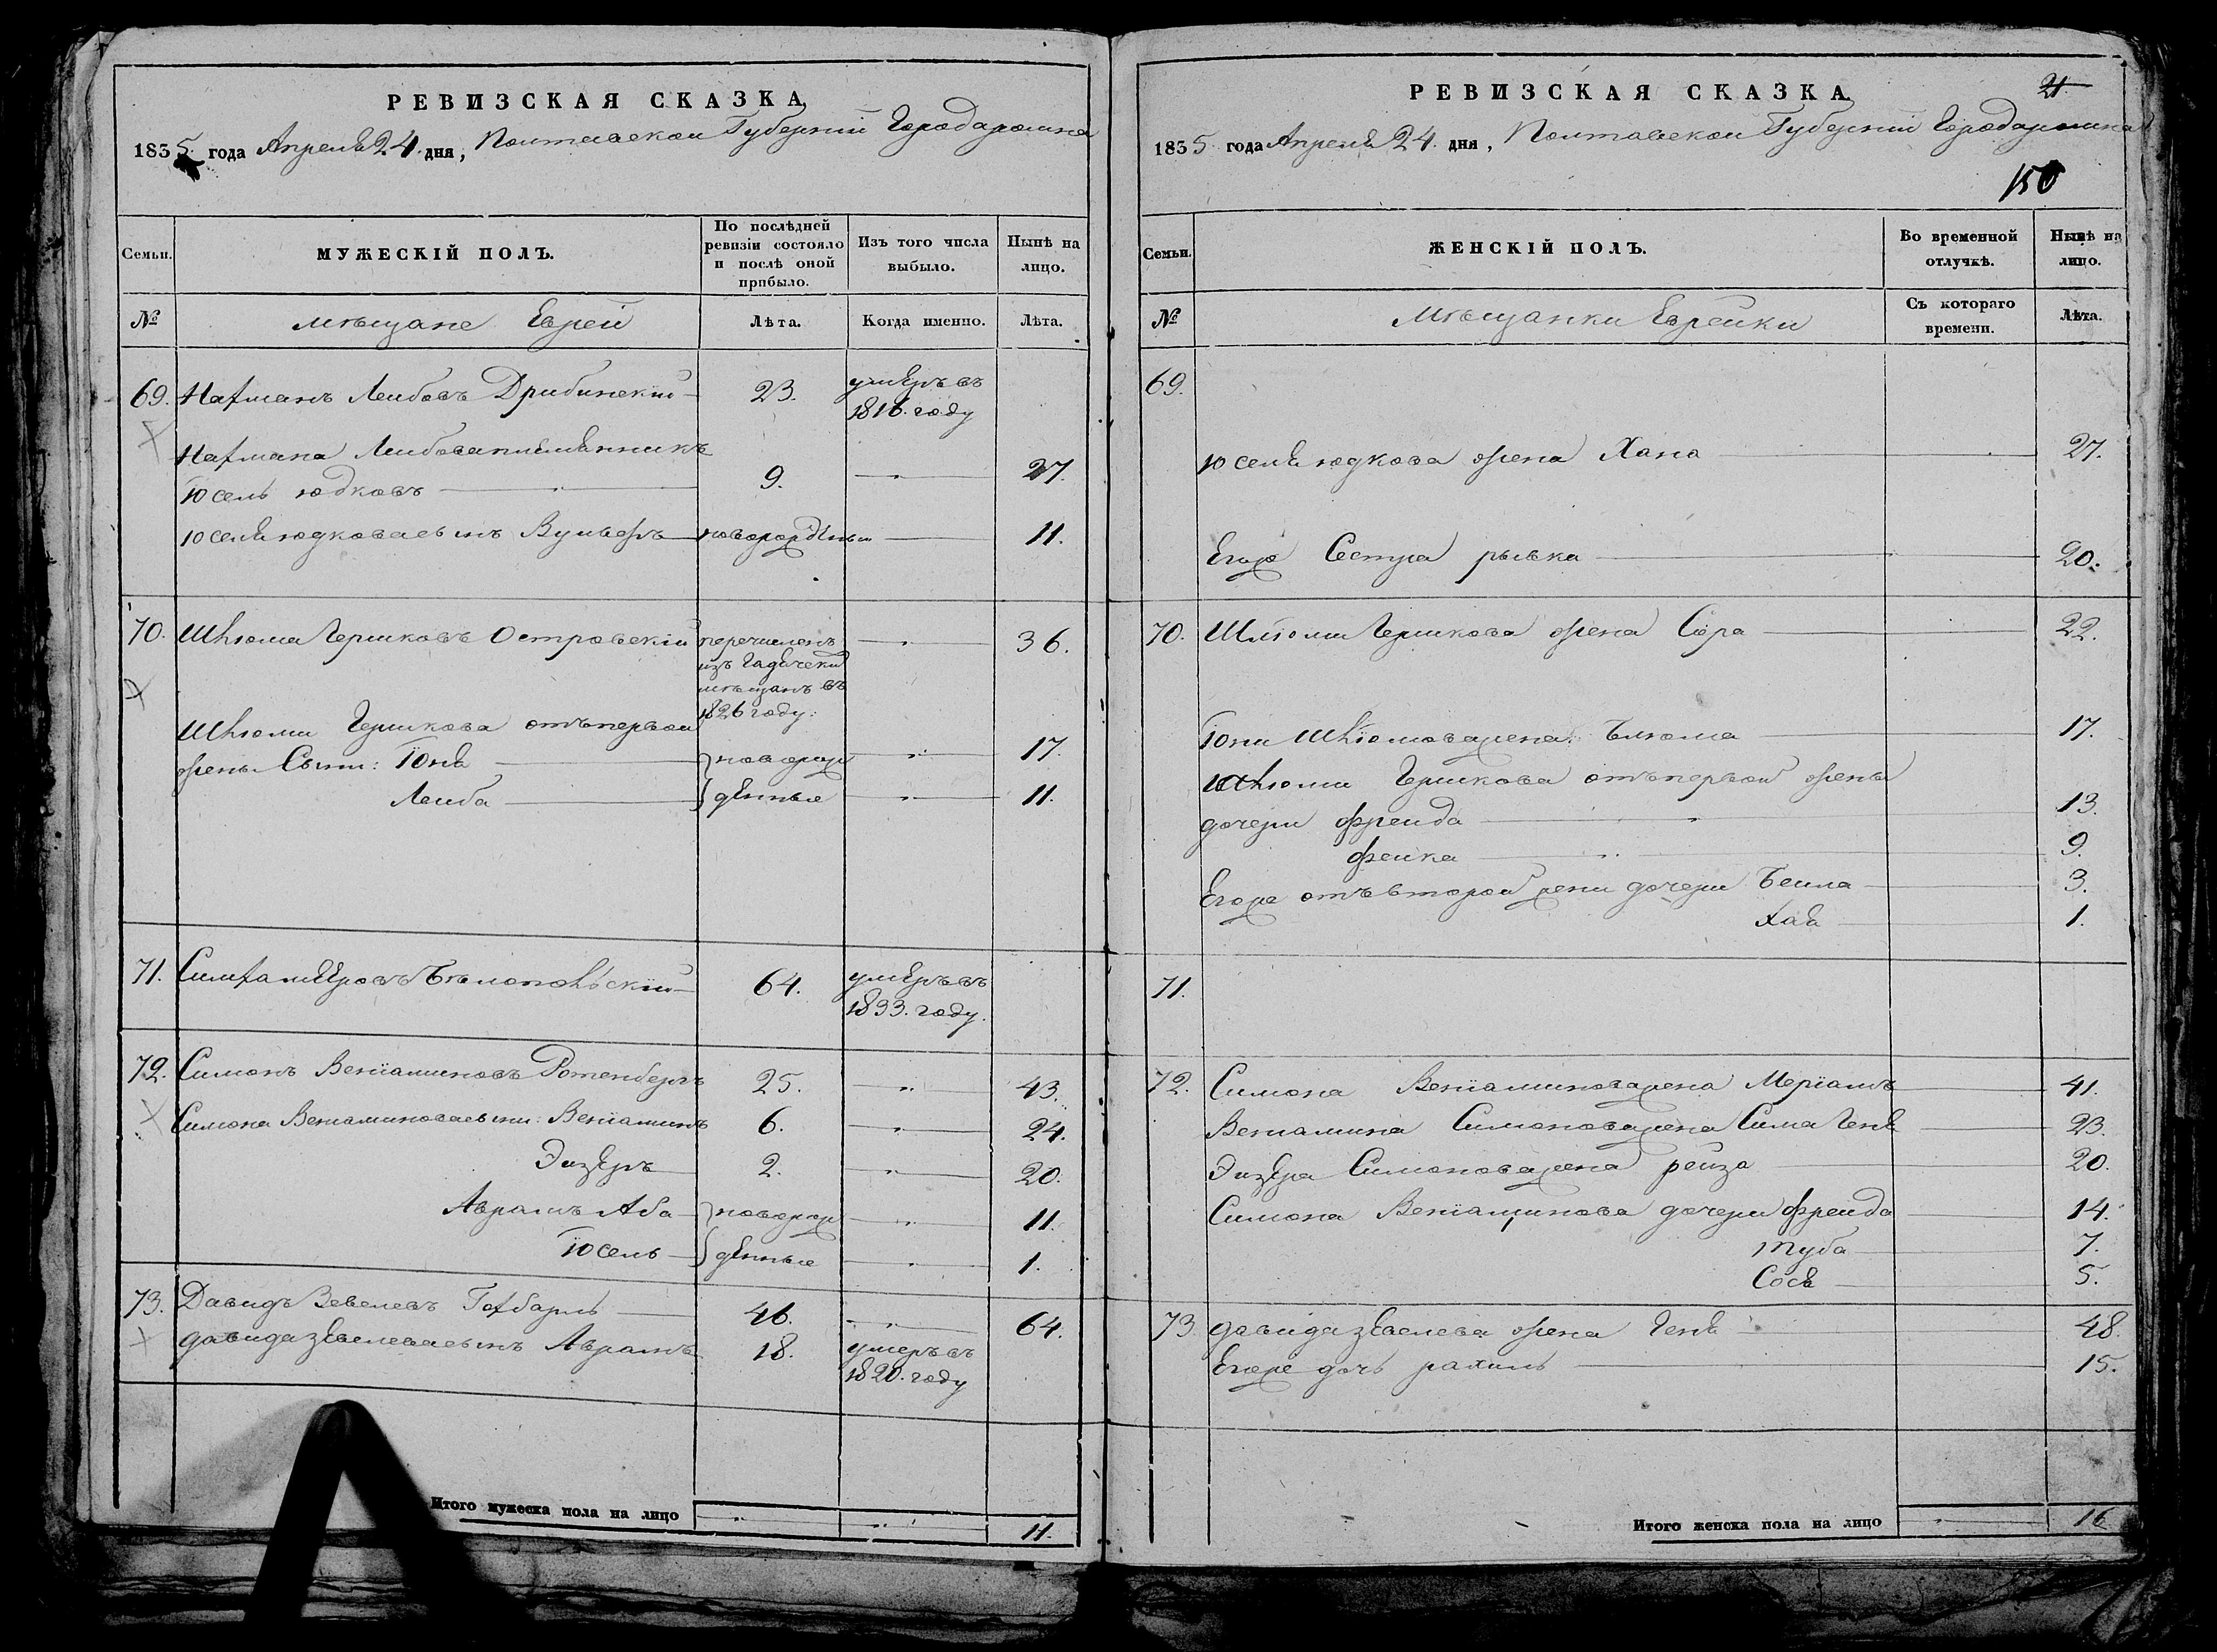 РЕВИЗСКАЯ СКАЗКА
1835. года Апреля 24. дня, Полтавской Губернїи Города ромна
Семьи.
МУЖЕСКІЙ ПОЛЪ.
По послѣдней ревизіи состояло и послѣ оной прибыло.
Изъ того числа выбыло.
Нынѣ на лицо.
№
мѣщане Еврей
Лѣта.
Когда именно.
Лѣта.
69. Нахманъ Лейбовъ Дрибинскїй 23. умеръ въ
1816. году
Нахмана Лейбова племенникъ
Іосель юдковъ 9. 27.
юселя юдкова сынъ Вульфъ новорожденый 11.
70. Шлюома Гершковъ Островскїй перечисленъ 36.
изъ Гадечски
мѣщанъ въ
1826 году:
Шлюоми Гершкова отъ первой
жены Сыни: Їоня новорож 17.
Лейба денные 11.
71. Симха меЕровъ 64. умеръ въ
1833. году.
72. Симонъ Венїаминовъ Ротенбергъ 25. 43.
Симона Венїаминова сыни: Венїаминъ 6. 24.
Эизеръ 2. 20.
Аврамъ Аба новорож 11.
Їосель денные 1.
73. Давидъ Зевелевъ Готбарпъ 46. 64.
давида зевелева сынъ Аврамъ 18. умеръ въ
1820. году
Итого мужеска пола на лицо 11.
РЕВИЗСКАЯ СКАЗКА.
21.
1835 года Апреля 24. дня, Полтавской Губернїи Города ромна
150
Семьи.
ЖЕНСКІЙ ПОЛЪ.
Во временной отлучкѣ.
Нынѣ на лицо.
№
Мѣщанки Еврейки
Съ котораго времени.
Лѣта.
69.
юселя юдкова жена Хана 27.
Егоже Сестра рывка 20.
70. Шлюоми Гершкова жена Сора 22.
Їони Шлюомова жена: Блюома 17.
Шлюоми Гершкова отъ первой жены
дочери фрейда 13.
фейка 9.
Егоже отъ второй жени дочери Бейла 3.
Хая 1.
71.
72. Симона Венїаминова жена Мерїамъ 41.
Венїамина Симонова жена Сима Геня 23.
Эизера Симонова жена рейза 20.
Симона Венїаминова дочери фрейда 14.
туба 7.
Сося 5.
73. давида зевелева жена Геня 48.
Егоже дочь рахиль 15.
Итого женска пола на лицо 16